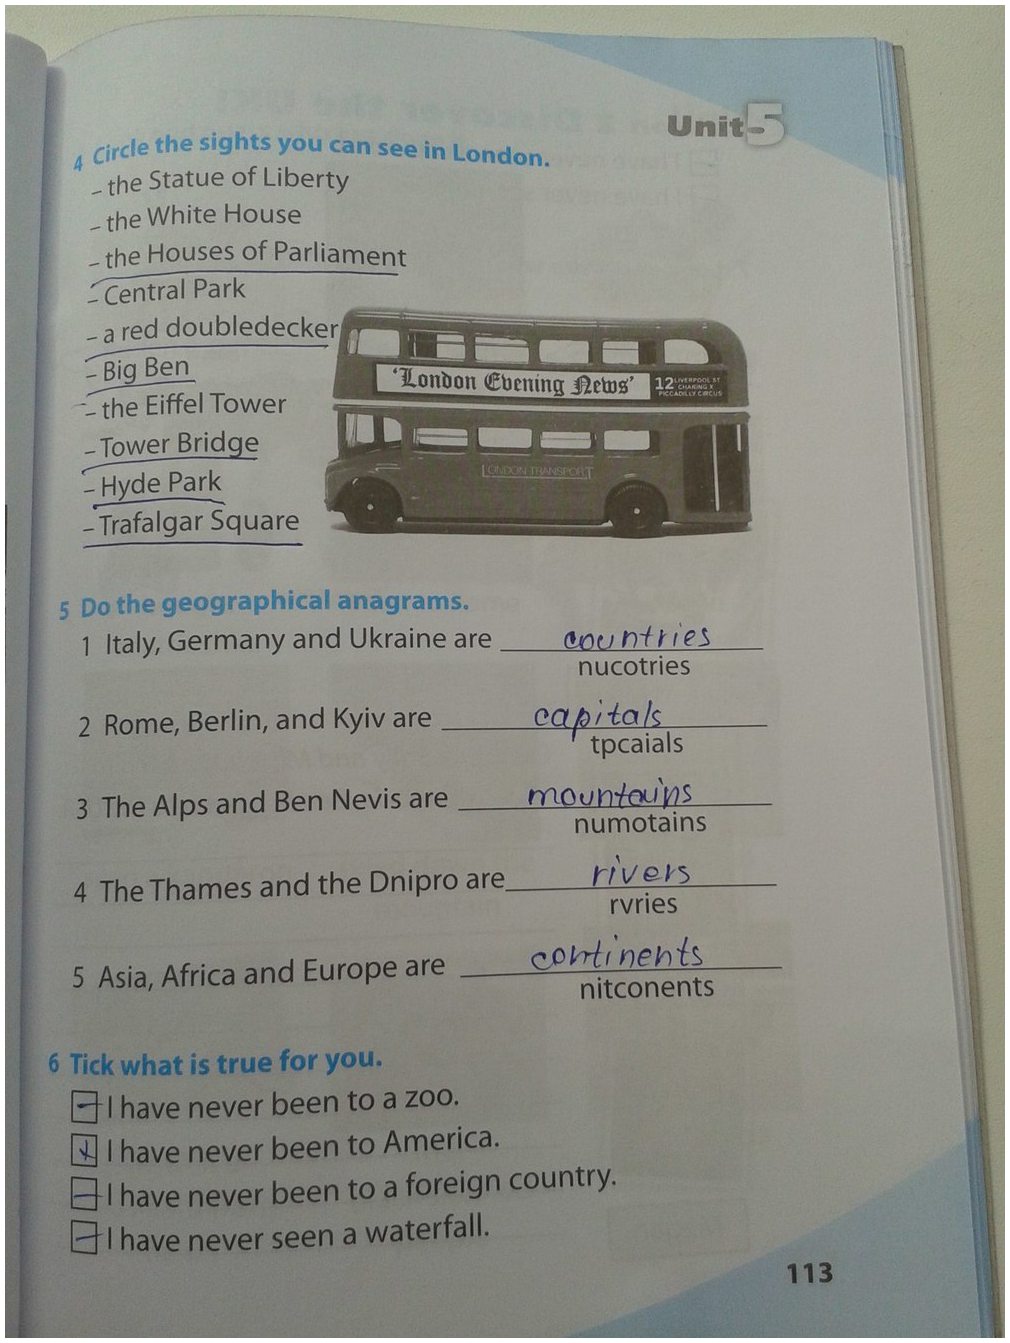 Unit 5
4 Circle the sights you can see in London.
– the Statue of Liberty
– the White House
– the Houses of Parliament
– Central Park
– a red doubledecker
– Big Ben
– the Eiffel Tower
– Tower Bridge
– Hyde Park
– Trafalgar Square
'London Evening News'
12 LIVERPOOL ST
CHARING X
PICCADILLY CIRCUS
LONDON TRANSPORT
5 Do the geographical anagrams.
1 Italy, Germany and Ukraine are countries
nucotries
2 Rome, Berlin, and Kyiv are capitals
tpcaials
3 The Alps and Ben Nevis are mountains
numotains
4 The Thames and the Dnipro are rivers
rvries
5 Asia, Africa and Europe are continents
nitconents
6 Tick what is true for you.
– I have never been to a zoo.
+ I have never been to America.
– I have never been to a foreign country.
– I have never seen a waterfall.
113